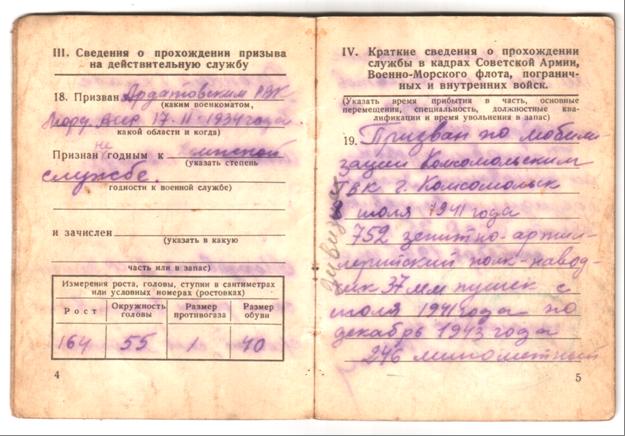 III. Сведения о прохождении призыва
на действительную службу
18. Призван Ардатовским РВК
(каким военкоматом,
Морд. Асср 17-II-1934 года
какой области и когда)
Признан не годным к воинской
(указать степень
службе.
годности к военной службе)
и зачислен
(указать в какую
часть или в запас)
Измерения роста, головы, ступни в сантиметрах
или условных номерах (ростовках)
Рост Окружность головы Размер противогаза Размер обуви
164 55 1 40
4
IV. Краткие сведения о прохождении
службы в кадрах Советской Армии,
Военно-Морского флота, погранич-
ных и внутренних войск.
(Указать время прибытия в часть, основные
перемещения, специальность, должностные ква-
лификации и время увольнения в запас)
19. Призван по мобили-
зации Комсомольским
ГВК г. Комсомольск
8 июля 1941 года
752 зенитно-артил-
лерийский полк-навод-
чик 37 мм пушек с
июля 1941 года по
декабрь 1943 года
246 минометный
5